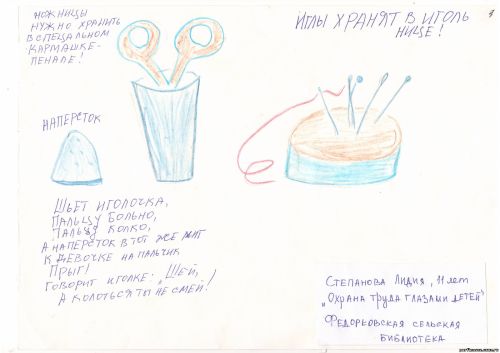 НОЖНИЦЫ
НУЖНО ХРАНИТЬ
В СПЕЦАЛЬНОМ
КАРМАШКЕ-
ПЕНАЛЕ!
ИГЛЫ ХРАНЯТ В ИГОЛЬ
НИЦЕ!
НАПЕРСТОК
ШЬЕТ ИГОЛОЧКА,
ПАЛЬЦУ БОЛЬНО,
ПАЛЬЦУ КОЛКО,
А НАПЕРСТОК В ТОТ ЖЕ МИГ
К ДЕВОЧКЕ НА ПАЛЬЧИК
ПРЫГ!
ГОВОРИТ ИГОЛКЕ: „ШЕЙ,
А КОЛОТЬСЯ ТЫ НЕ СМЕЙ!
СТЕПАНОВА ЛИДИЯ, 11 лет
„ОХРАНА ТРУДА ГЛАЗАМИ ДЕТЕЙ"
ФЕДОРКОВСКАЯ СЕЛЬСКАЯ
БИБЛИОТЕКА